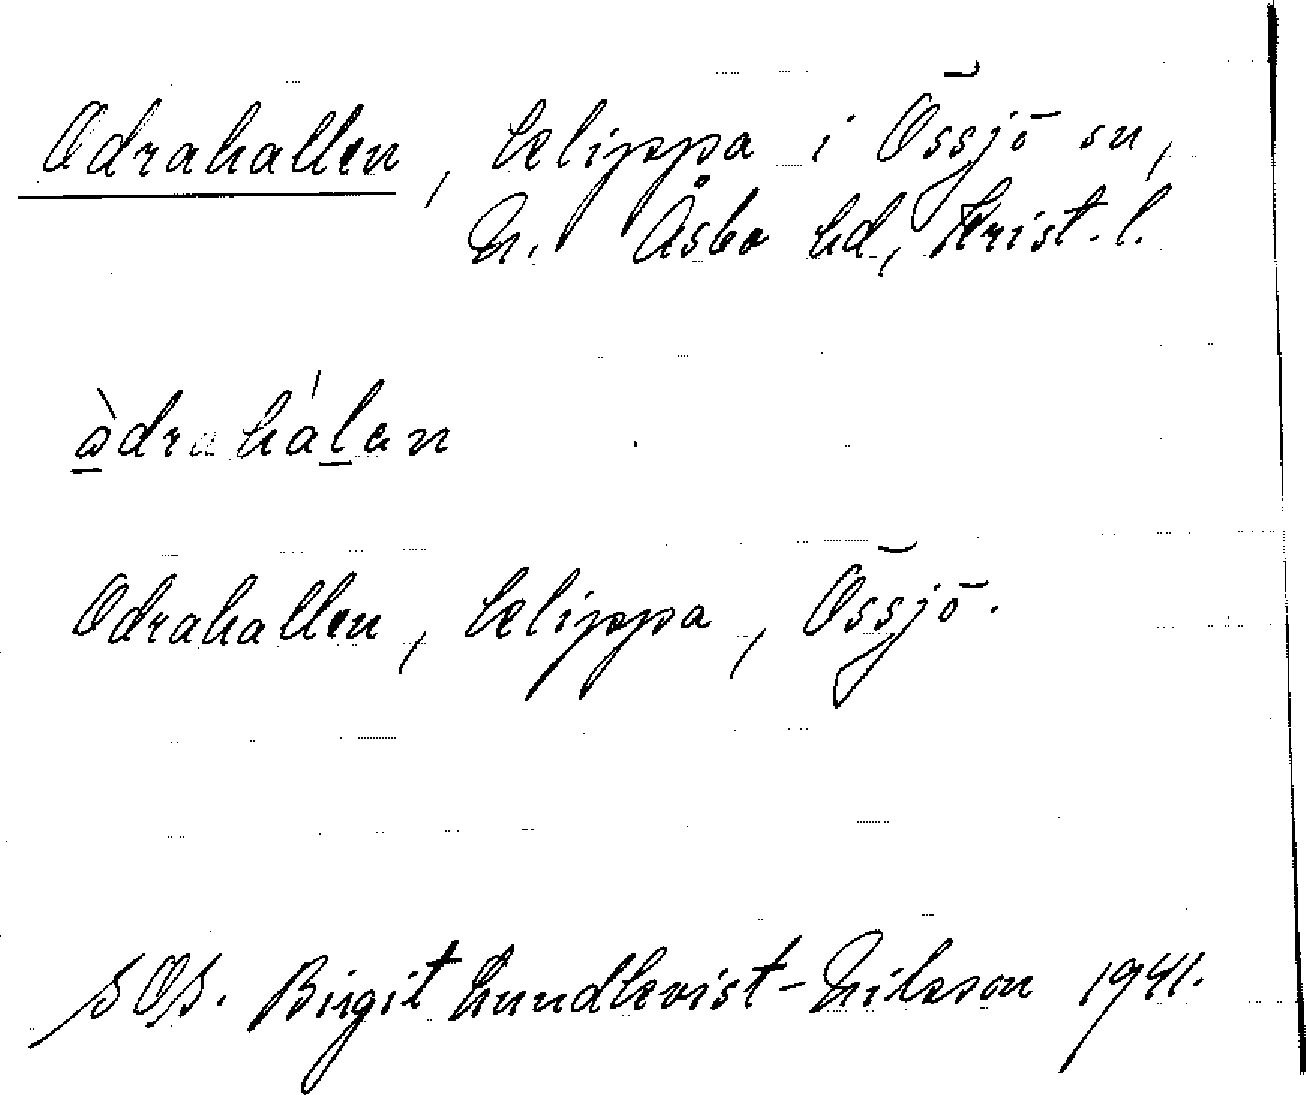 Odrahallen, klippa i Össjö sn,
N. Åsbo hd, Krist. l.
àdrahálan
Odrahallen, klippa, Össjö.
SOS. Birgit Lundkvist-Nilsson 1941.